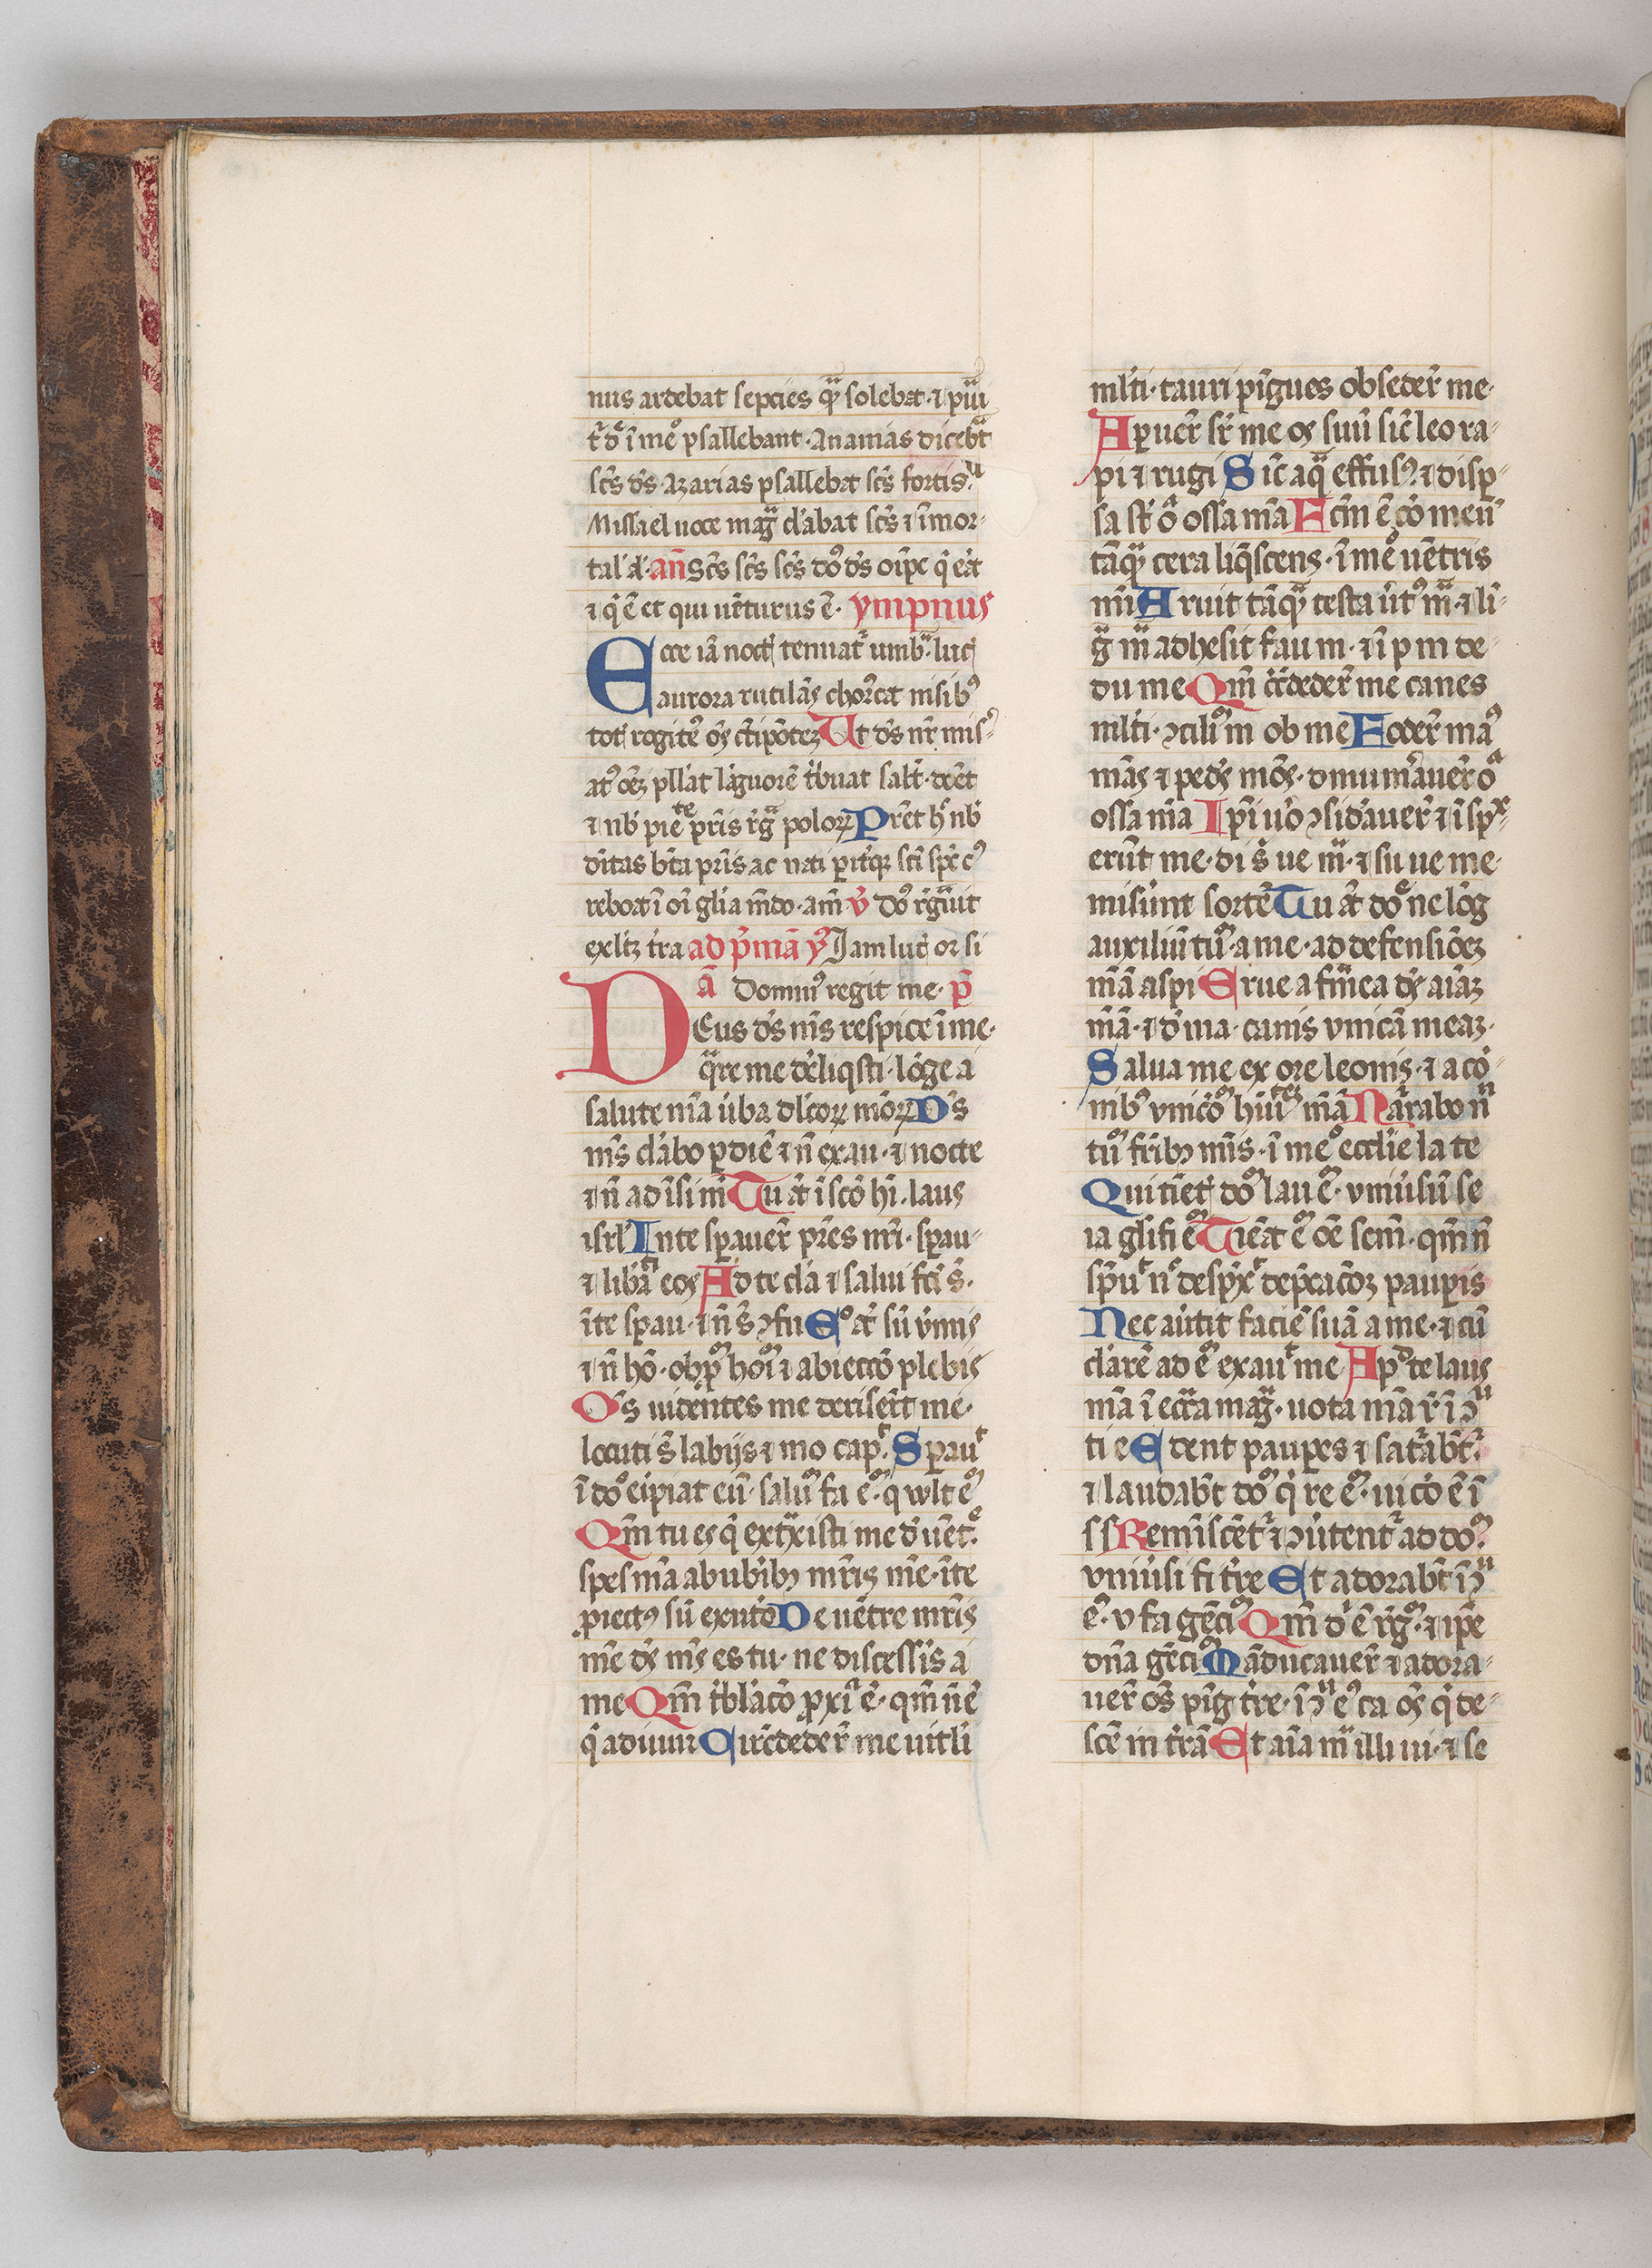 nus ardebat sepcies qͣ solebat ⁊ puͥi
t̄ō ī meͦ psallebant · Ananias diceb̄t
scs ds · Azarias psallebat scs fortisͧ
Missael uoce magͣ clābat scs ⁊ īmor-
tal̓ a̓ · an̄ Scs scs scs do̓ ds oīpc q̄ eat
⁊ q̄ ē et qui uēturus ē · ympnus
Ecce iā noct̄ tenuat̓ umbͣ · luc̄
aurora rutilās choꝛcat nisib̓
tot̄ rogitē os Ut ds nr̄ mis̓-
at̓ pll̄at lāguorē t̓buat salt̄ · det
⁊ nb̓ pieͭͤ pr̄is r̄gͣ polorꝝ Pret h̓ nb̓
ditas bt̄a pr̄is ac nati pit̓qꝫ sc̄i sp̄c c̓
reboat ī oī gl̄ia mdo · am̄ v̓ Do̓ r̄gͣuit
exltꝫ t̓ra ad p̓mā y̓ Iam luc̓ or si
ā Domin̓ regit me · p̄
DEus ds ms respice ī me ·
qͣre me d̓eliqsti · lōge a
salute mā ūba dlcoꝝ moꝝ Ds
ms clābo p diē ⁊ n̄ exau · ⁊ nocte
⁊ n̄ ad īsi m̄ Tu at̄ ī scō hi · laus
isrl̓ In te spauer̄ pr̄es nr̄i · spau-
⁊ libaͬͭͥ eos Ad te cla ⁊ salui fc̄i s̄ ·
ī te spau · ⁊ n̄ s̄ ꝯfu Eͦ at̄ sū v̄mis
⁊ n̄ hō · obpͫ hoīͫ ⁊ abieccō plebis
Os uidentes me deriser̄t me ·
locuti s̄ labijs ⁊ mo capͭ · Spauͭ
ī doͦ eipiat eū · saluͫ fa eͫ · q wlt eͫ
Qm̄ tu es q̄ extͣxisti me d̓ uēt̓ͤ ·
spes mā ab ubib̓ꝫ mr̄is mē · ī te
piectꝰ sū ex utō De uētre mr̄is
mē ds ms es tu · ne discessis a
me Qm̄ t̓blācō pxīͣ ē · qm̄ n̄ ē
q̄ adiuuu Circūdeder̄ me uitli
ml̓ti · tauri pīgues obseder̄ me ·
Apuer̄ sr̄ me os suū sic̄ leo ra-
pi ⁊ rugi Sic̄ aqͣ effus̓ · ⁊ disp-
sa st̄ ōͣ ossa mā Fc̄m ē cō meū
tāqͣ cera liq̄scens · ī meͦ uētris
mī Aruit tāqͣ testa ūt̓ mͣ · ⁊ li-
gͣ mͣ adhesit fau m · ⁊ ī p m de-
du me Qm̄ cr̄cdeder̄ me canes
ml̓ti · ꝯciliūͫ m ob me Foder̄ ma̓
mās ⁊ peds mōs · dinumauer̄ ōͣ
ossa mā Ipi uō ꝯsidauer̄ ⁊ īspͯ-
erūt me · di s̄ ue m̄ · ⁊ su ue me ·
misūnt sortē Tu at̄ doͤ ne lōg
auxiliū tūͫ · a me · ad defensiōeꝫ
mā aspi Erue a fͣmea ds aiaꝫ
mā · ⁊ d̓ ma · canis vnicā meaꝫ ·
Salua me ex ore leonis · ⁊ a cō-
nib̓ vnicōͫ hūiͭͤ mā Narrabo nͫ
tūͫ frib̓ꝫ mis · ī meͦ ecclie la te
Qui timet̓ doͫ lau eͫ · vniūsū se
ia glifi eͫ Timeat eͫ oē sem̄ · qm̄ n̄
spuͭ nͨ despͯͭ depcacōꝫ paupis
Nec aūtit faciē suā a me · ⁊ cū
clārē ad eͫ exauͭ me Apᵈ te laus
mā ī eccͣa magͣ · uota mā r̄ ī ꝯͧ
ti e Edent paupes ⁊ satābt̄ʳ ·
⁊ laudabt̄ doͫ q̄ re eͫ · ui cō ē ī
ss Remīscēt̓ ⁊ ꝯūtent̓ ad doͫ
vniūsi fi t̄re Et adorabt̄ ī ꝯͧ
e̓ · v fa gēciͫ Qm̄ d̓ ē r̄gͫ · ⁊ ipe
dna gēciͫ Māducauer̄ ⁊ adora-
uer̄ oēs pīg t̄re · ī ꝯͧ e̓ ca os q̄ de-
scē in t̄rā Et aīa mͣ illi ui · ⁊ se